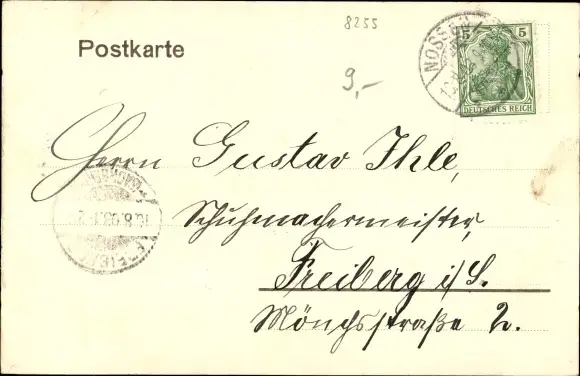 8255
Postkarte
9,-
NOSSEN
5 5
DEUTSCHES REICH
Herrn Gustav Ihle,
Schuhmachermeister,
Freiberg i/S.
Mönchsstraße 2.